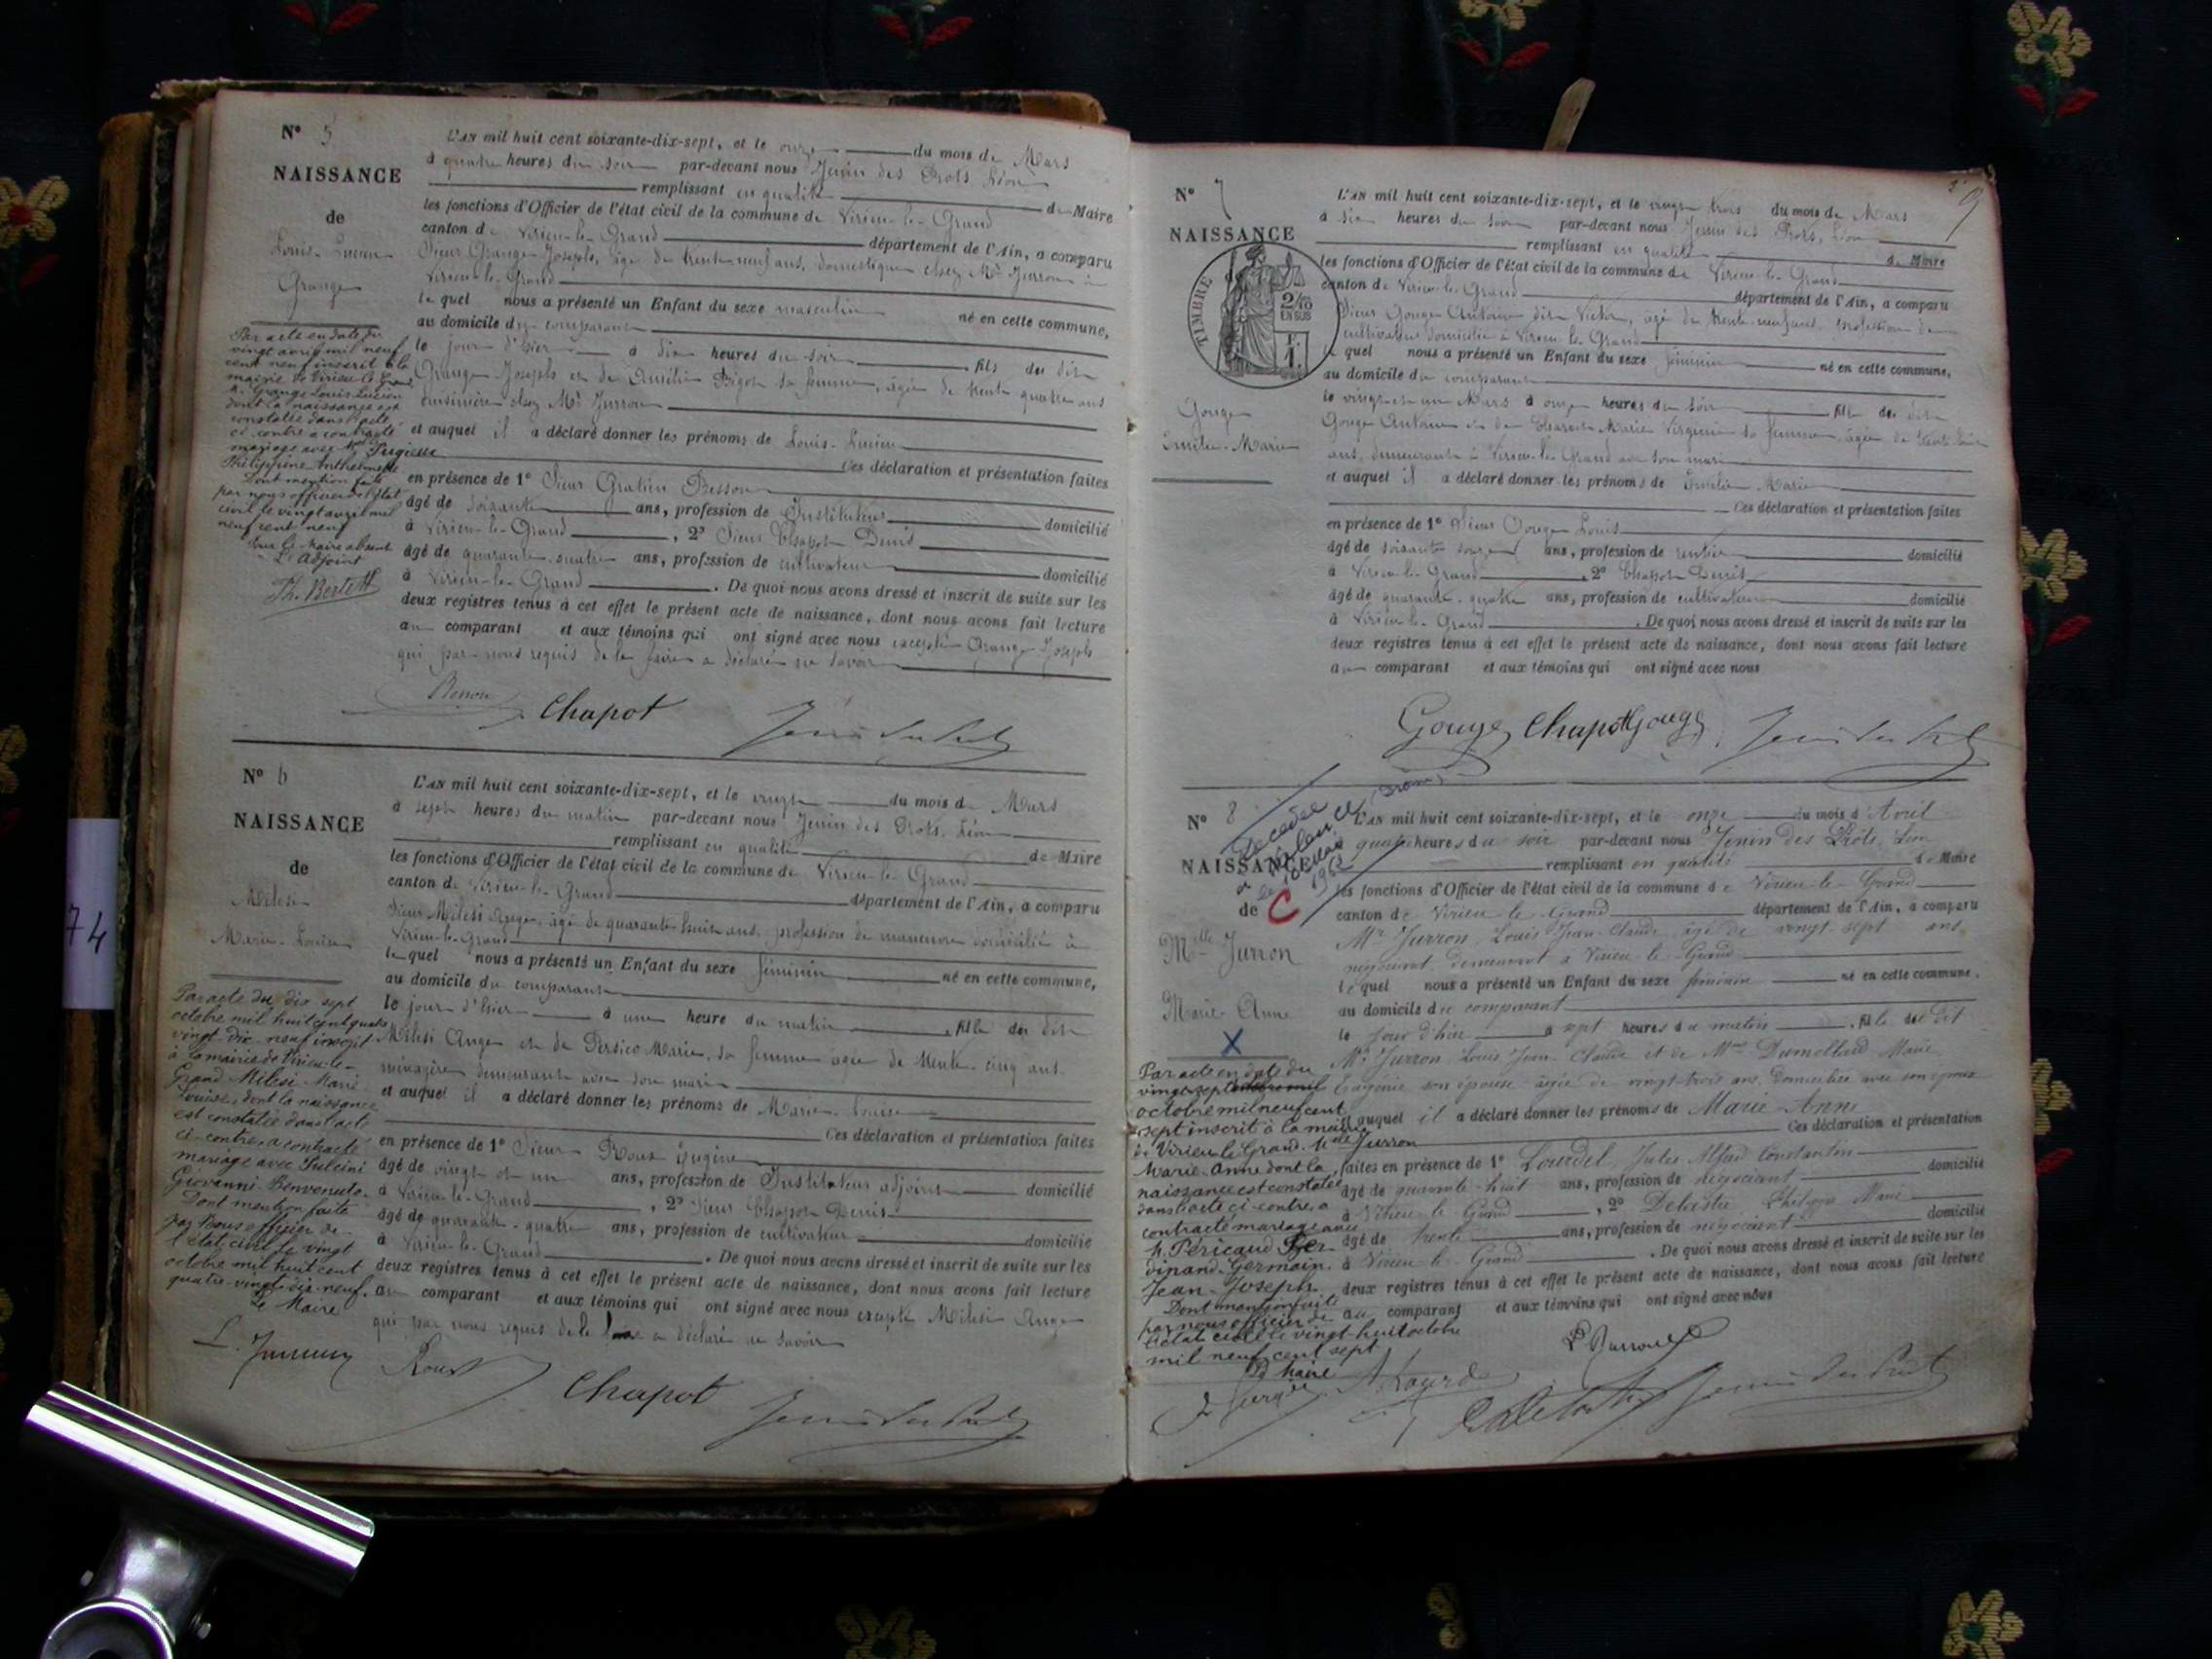 N° 5
NAISSANCE
de
Louis-Lucien
Grange
L'AN mil huit cent soixante-dix-sept, et le onze du mois de Mars
à quatre heures du soir par-devant nous Jenin des Prots, Léon
remplissant en qualité de Maire
les fonctions d'Officier de l'état civil de la commune de Virieu-le-Grand
canton de Virieu-le-Grand département de l'Ain, a comparu
Sieur Grange Joseph, âgé de trente-neuf ans, domestique chez Mr Jurron à
Virieu-le-Grand
lequel nous a présenté un Enfant du sexe masculin né en cette commune,
au domicile du comparant
le jour d'hier à dix heures du soir, fils du dit
Grange Joseph et de Amélie Bigot sa femme, âgée de trente quatre ans
cuisinière chez Mr Jurron
et auquel il a déclaré donner les prénoms de Louis-Lucien
Ces déclaration et présentation faites
en présence de 1° Sieur Besson
âgé de soixante ans, profession de Instituteur domicilié
à Virieu-le-Grand, 2° Sieur Chapot Denis
âgé de quarante-quatre ans, profession de cultivateur domicilié
à Virieu-le-Grand. De quoi nous avons dressé et inscrit de suite sur les
deux registres tenus à cet effet le présent acte de naissance, dont nous avons fait lecture
au comparant et aux témoins qui ont signé avec nous excepté Grange Joseph
qui par nous requis de le faire a déclaré ne savoir
Chapot
Par acte en date du
vingt avril mil neuf
cent neuf inscrit à la
mairie de Virieu le Grand
Mr Grange Louis Lucien
dont la naissance est
constatée dans l'acte
ci-contre a contracté
mariage avec Mlle
Philippine Anthelmette
Dont mention faite
par nous officier de l'état
civil le vingt avril mil
neuf cent neuf
Pour le Maire absent
L'Adjoint
Th. Bertett
N° 6
NAISSANCE
de
Milesi
Marie-Louise
L'AN mil huit cent soixante-dix-sept, et le vingt du mois de Mars
à sept heures du matin par-devant nous Jenin des Prots, Léon
remplissant en qualité de Maire
les fonctions d'Officier de l'état civil de la commune de Virieu-le-Grand
canton de Virieu-le-Grand département de l'Ain, a comparu
Sieur Milesi Ange, âgé de quarante huit ans, profession de manœuvre domicilié à
Virieu-le-Grand
lequel nous a présenté un Enfant du sexe féminin né en cette commune,
au domicile du comparant
le jour d'hier à une heure du matin, fille du dit
Milesi Ange et de Persico Marie, sa femme âgée de trente-cinq ans
ménagère demeurant avec son mari
et auquel il a déclaré donner les prénoms de Marie-Louise
Ces déclaration et présentation faites
en présence de 1° Sieur Roux Eugène
âgé de vingt et un ans, profession de Instituteur adjoint domicilié
à Virieu-le-Grand, 2° Sieur Chapot Denis
âgé de quarante-quatre ans, profession de cultivateur domicilié
à Virieu-le-Grand. De quoi nous avons dressé et inscrit de suite sur les
deux registres tenus à cet effet le présent acte de naissance, dont nous avons fait lecture
au comparant et aux témoins qui ont signé avec nous excepté Milesi Ange
qui par nous requis de le faire a déclaré ne savoir
Roux Chapot
Par acte du dix sept
octobre mil huit cent quatre
vingt-dix-neuf inscrit
à la mairie de Virieu-le-
Grand Milesi Marie
Louise, dont la naissance
est constatée dans l'acte
ci-contre, a contracté
mariage avec Pulcini
Giovanni-Benvenuto.
Dont mention faite
par Nous officier de
l'état civil le vingt
octobre mil huit cent
quatre-vingt-dix-neuf.
Le Maire
74
N° 7
9
NAISSANCE
TIMBRE
2/10
EN SUS
F.
1.
Gouge
Emilie-Marie
L'AN mil huit cent soixante-dix-sept, et le vingt trois du mois de Mars
à six heures du soir par-devant nous Jenin des Prots, Léon
remplissant en qualité de Maire
les fonctions d'Officier de l'état civil de la commune de Virieu-le-Grand
canton de Virieu-le-Grand département de l'Ain, a comparu
Sieur Gouge Antoine dit Victor, âgé de trente-neuf ans, profession de
cultivateur domicilié à Virieu-le-Grand
lequel nous a présenté un Enfant du sexe féminin né en cette commune,
au domicile du comparant
le vingt-et-un Mars à onze heures du soir, fille du dit
Gouge Antoine et de Marie Virginie sa femme, âgée de
ans, demeurant à Virieu-le-Grand avec son mari
et auquel il a déclaré donner les prénoms de Emilie Marie
Ces déclaration et présentation faites
en présence de 1° Sieur Gouge Louis
âgé de soixante ans, profession de rentier domicilié
à Virieu-le-Grand, 2° Chapot Denis
âgé de quarante-quatre ans, profession de cultivateur domicilié
à Virieu-le-Grand. De quoi nous avons dressé et inscrit de suite sur les
deux registres tenus à cet effet le présent acte de naissance, dont nous avons fait lecture
au comparant et aux témoins qui ont signé avec nous
Gouge Chapot Gouge
N° 8
NAISSANCE
de
C
Décédée
à Valence (Drôme)
Mlle Jurron
Marie-Anne
X
L'AN mil huit cent soixante-dix-sept, et le onze du mois d'Avril
à quatre heures du soir par-devant nous Jenin des Prots, Léon
remplissant en qualité de Maire
les fonctions d'Officier de l'état civil de la commune de Virieu-le-Grand
canton de Virieu le Grand département de l'Ain, a comparu
Mr Jurron, Louis Jean-Claude âgé de vingt sept ans
négociant, demeurant à Virieu-le-Grand
lequel nous a présenté un Enfant du sexe féminin né en cette commune,
au domicile du comparant
le jour d'hier à sept heures du matin, fille du dit
Mr Jurron Louis Jean-Claude et de Mme Dumollard Marie
Eugénie son épouse âgée de vingt-trois ans, domiciliée avec son époux
et auquel il a déclaré donner les prénoms de Marie-Anne
Ces déclaration et présentation
faites en présence de 1° Lourdel, Jules Alfred Constantin
âgé de quarante-huit ans, profession de négociant domicilié
à Virieu-le-Grand, 2° Philippe Marie
âgé de trente ans, profession de négociant domicilié
à Virieu-le-Grand. De quoi nous avons dressé et inscrit de suite sur les
deux registres tenus à cet effet le présent acte de naissance, dont nous avons fait lecture
au comparant et aux témoins qui ont signé avec nous
Par acte en date du
vingt-sept
octobre mil neuf cent
sept inscrit à la mairie
de Virieu le Grand, Mlle Jurron
Marie-Anne dont la
naissance est constatée
dans l'acte ci-contre, a
contracté mariage avec
M. Péricaud Fer-
dinand-Germain
Jean-Joseph.
Dont mention faite
par nous officier de
l'état civil le vingt-huit octobre
mil neuf cent sept
Le Maire